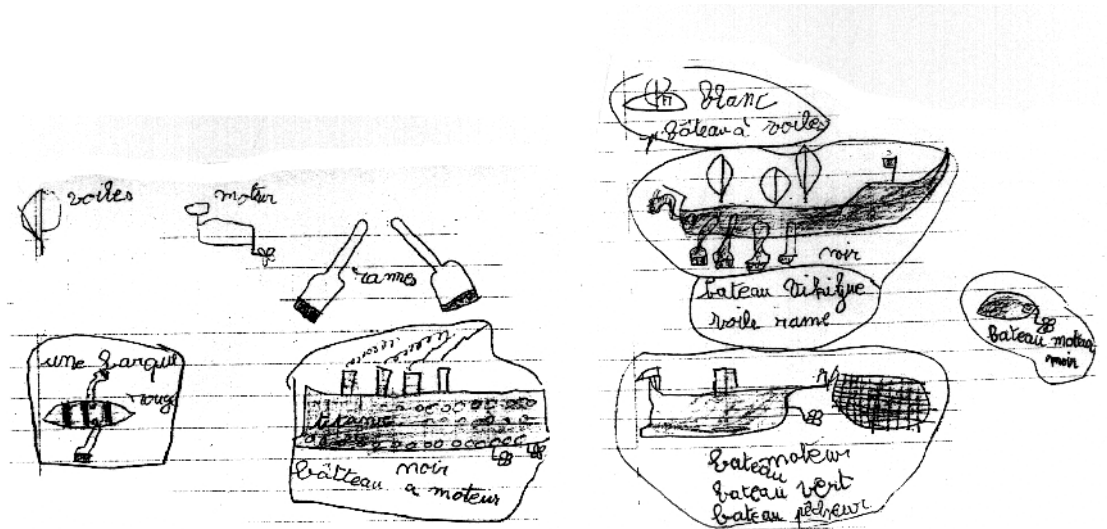 voiles
moteur
rames
une barque
rouge
titanic
noir
bâtteau a moteur
blanc
bâteau à voiles
noir
bateau vikifne
voile rame
bateau moteur
noir
bateau moteur
bateau vert
bateau pêcheur